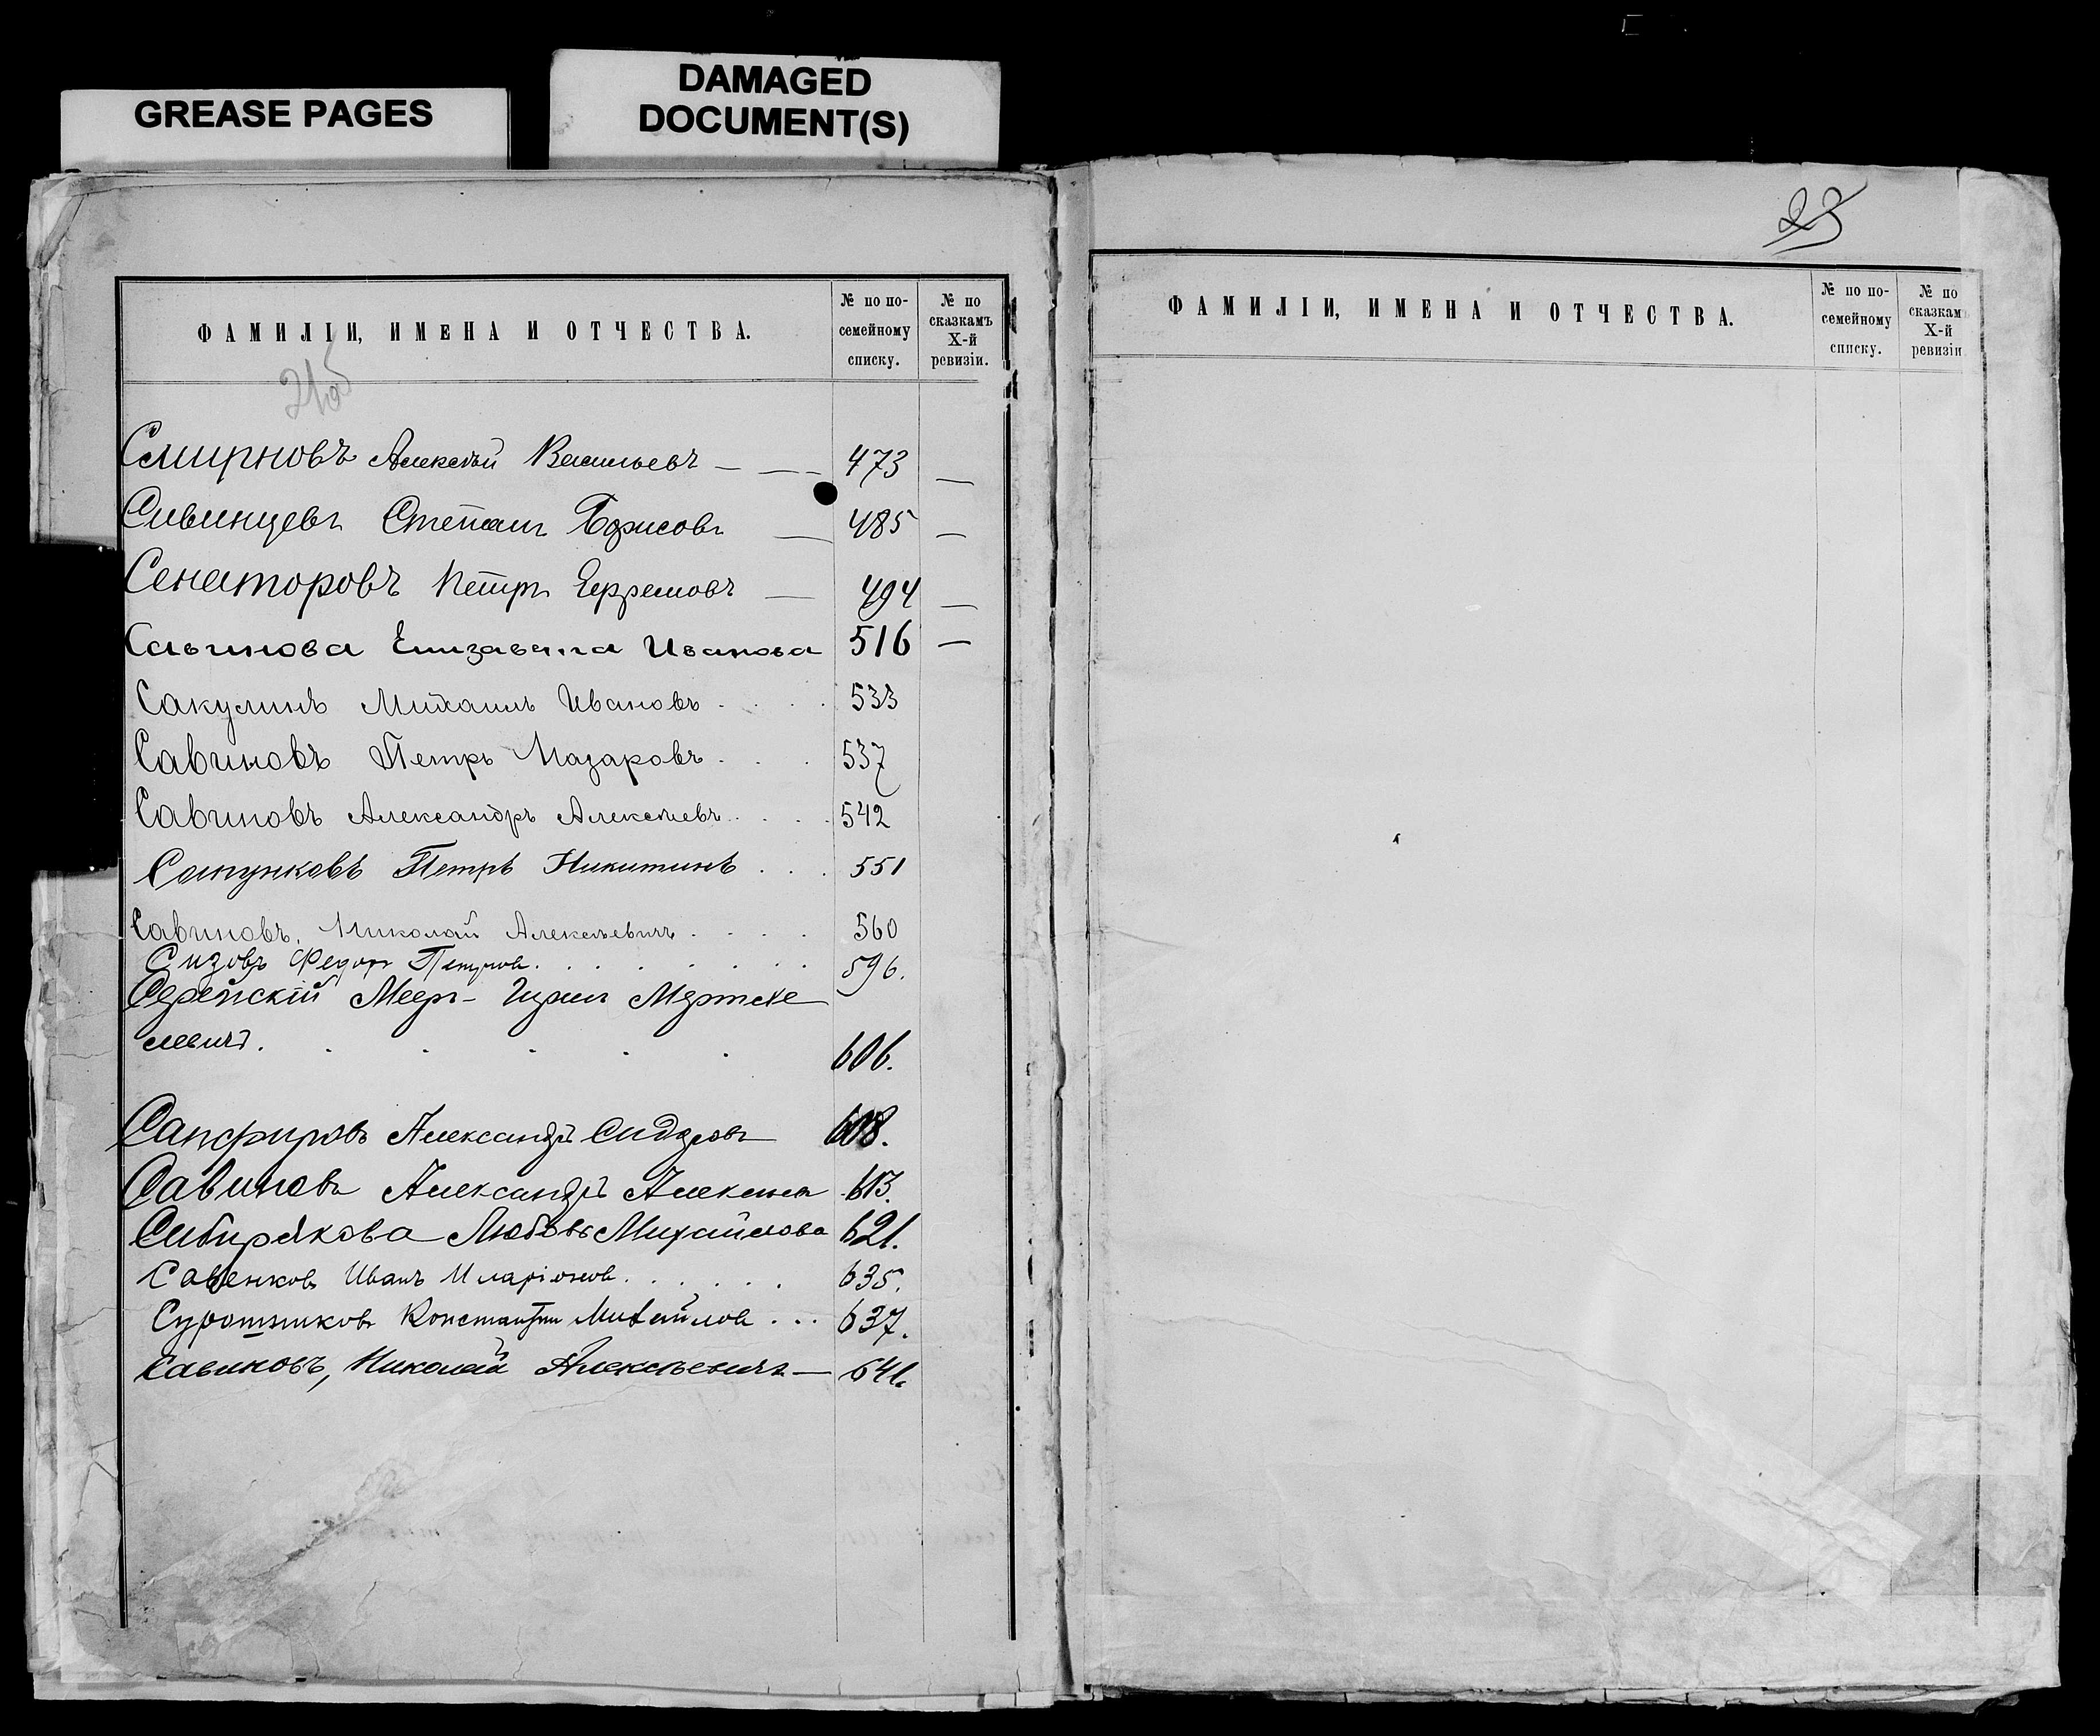 GREASE PAGES
DAMAGED
DOCUMENT(S)
ФАМИЛІИ, ИМЕНА И ОТЧЕСТВА.
№ по по-
семейному
списку.
№ по
сказкамъ
X-й
ревизіи.
Смирновъ Алексѣй Васильевъ — — 473 —
Сивинцевъ Степанъ Борисовъ — 485 —
Сенаторовъ Петръ Ефремовъ — 494 —
Савинова Елизавета Иванова 516 —
Сакулинъ Михаилъ Ивановъ . . . . 533
Савиновъ Петръ Назаровъ . . . 537
Савиновъ Александръ Алексѣевъ . . . . 542
Сапунковъ Петръ Никитинъ . . . 551
Савиновъ, Николай Алексѣевичъ . . . . 560
Сизовъ Федоръ Петровъ . . . . . . . 596.
Серейскій Меер-
левичъ . . . . . . 606.
Сапфировъ Александръ Сидоровъ 608.
Савиновъ Александръ Алексѣев 613.
Сибирякова Любовь Михайлова 621.
Савенковъ Иванъ Иларіонов . . . . . 635.
Сыромятников Константин Михайлов . . . 637.
Савиновъ, Николай Алексѣевичъ — 641.
23
ФАМИЛІИ, ИМЕНА И ОТЧЕСТВА.
№ по по-
семейному
списку.
№ по
сказкам
X-й
ревизіи